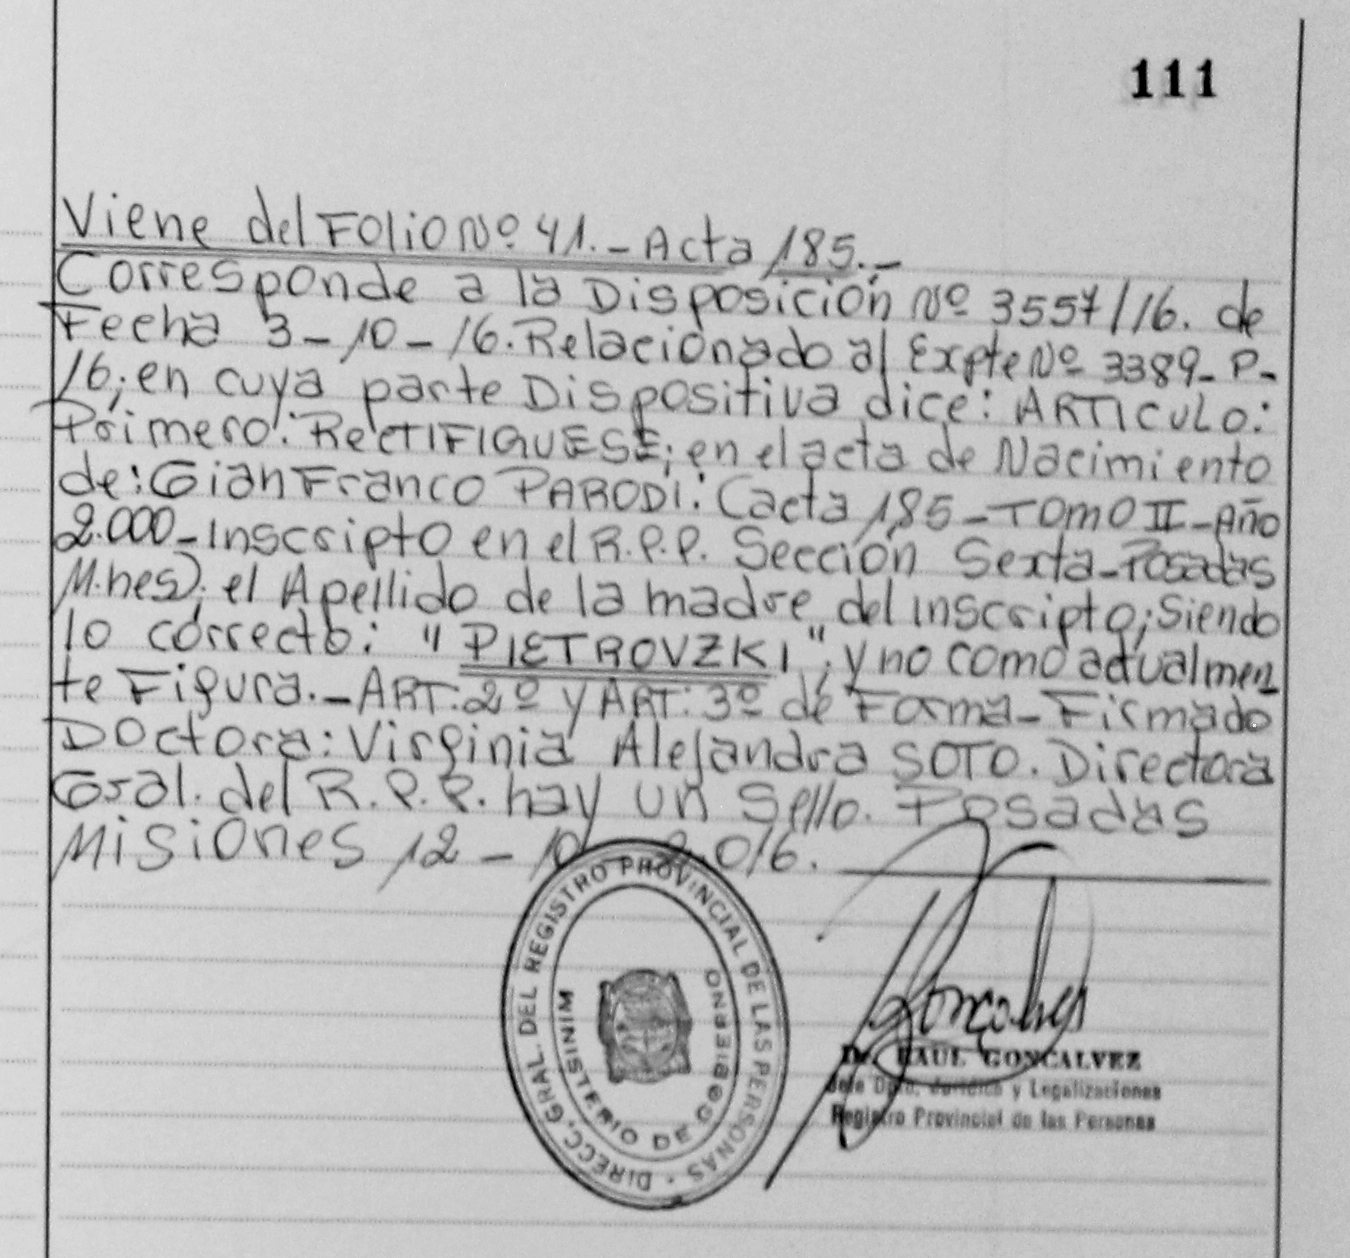 111
Viene del Folio Nº 41.- Acta 185.-
Corresponde a la Disposición Nº 3557/16. de
Fecha 3-10-16. Relacionado al Expte Nº 3389-P-
16; en cuya parte Dispositiva dice: ARTICULO:
Primero: RECTIFIQUESE; en el acta de Nacimiento
de: Gian Franco PARODI: (acta 185-TOMO II-Año
2.000-Inscripto en el R.P.P. Sección Sexta-Posadas
M.nes); el Apellido de la madre del inscripto; Siendo
lo correcto: "PIETROVZKI"; y no como actualmen
te Figura.- ART: 2º y ART: 3º de Forma-Firmado
Doctora: Virginia Alejandra SOTO. Directora
Gral. del R.P.P. hay un Sello. Posadas
Misiones 12-10-2.016.
DIRECC. GRAL. DEL REGISTRO PROVINCIAL DE LAS PERSONAS
MINISTERIO DE GOBIERNO
Goncalvez
Dr. RAUL GONCALVEZ
Jefe Dpto. Jurídico y Legalizaciones
Registro Provincial de las Personas